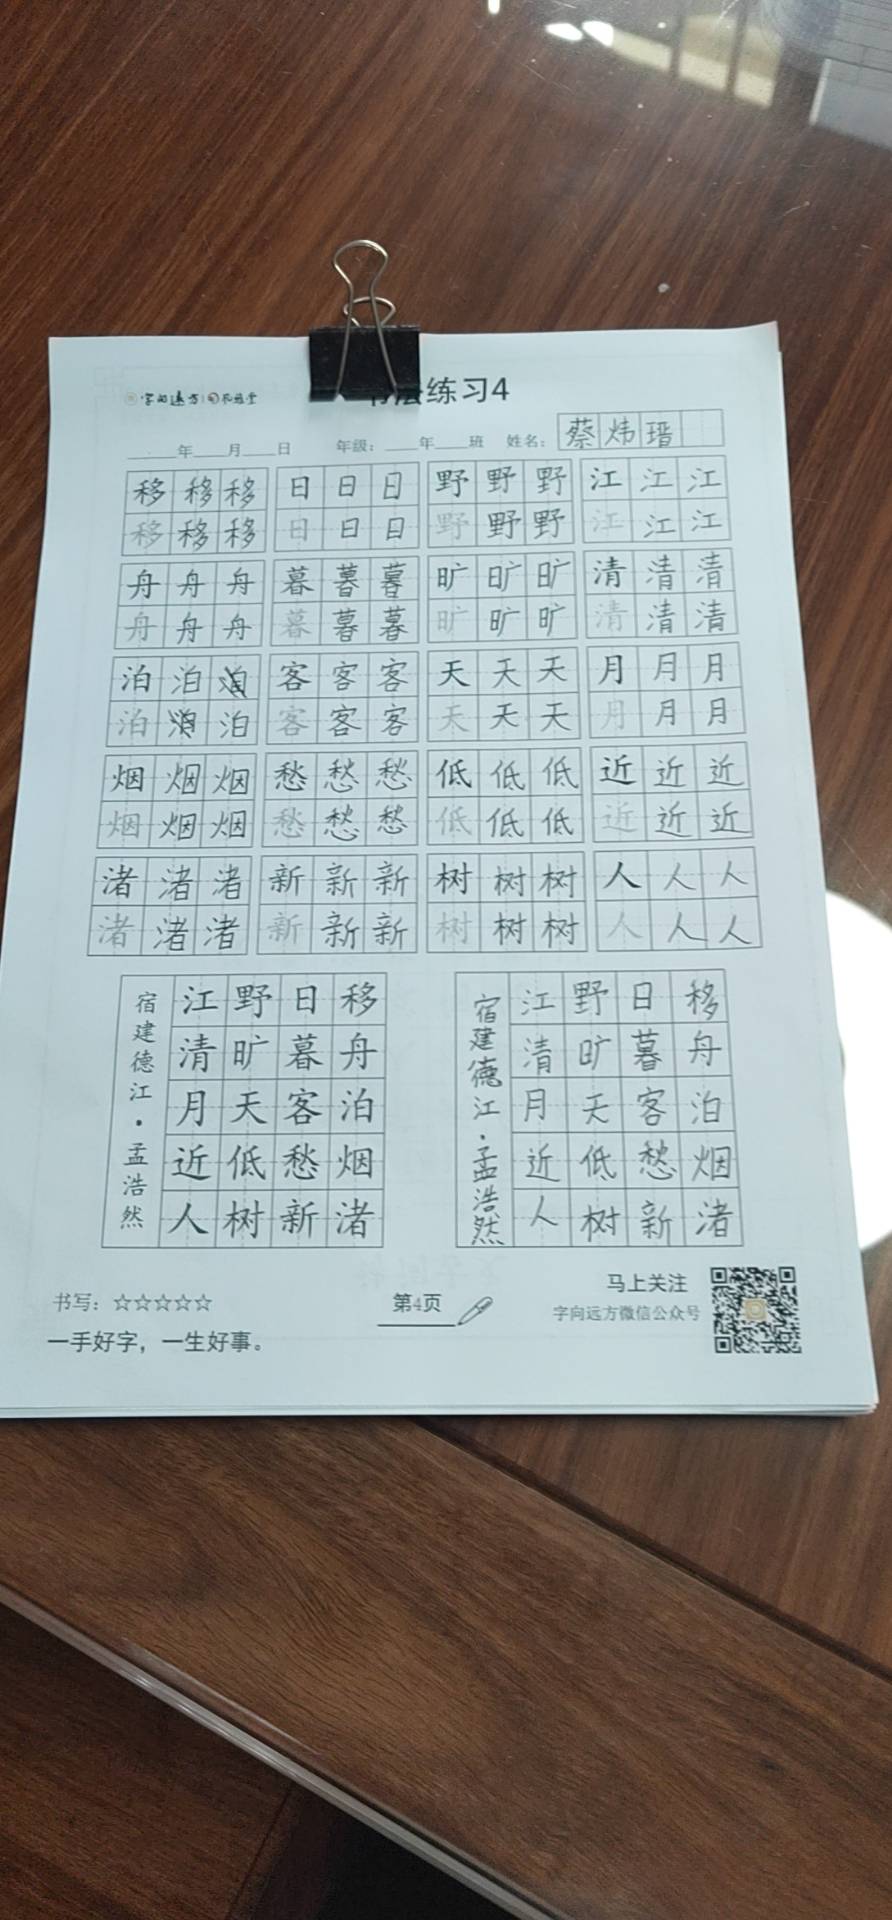 字向远方
书法练习4
____年____月____日 年级：____年____班 姓名：蔡炜瑨
移移移 日日日 野野野 江江江
移移移 日日日 野野野 江江江
舟舟舟 暮暮暮 旷旷旷 清清清
舟舟舟 暮暮暮 旷旷旷 清清清
泊泊 客客客 天天天 月月月
泊泊 客客客 天天天 月月月
烟烟烟 愁愁愁 低低低 近近近
烟烟烟 愁愁愁 低低低 近近近
渚渚渚 新新新 树树树 人人人
渚渚渚 新新新 树树树 人人人
宿建德江·孟浩然
移舟泊烟渚
日暮客愁新
野旷天低树
江清月近人
宿建德江·孟浩然
移舟泊烟渚
日暮客愁新
野旷天低树
江清月近人
书写：☆☆☆☆☆
一手好字，一生好事。
第4页
马上关注
字向远方微信公众号